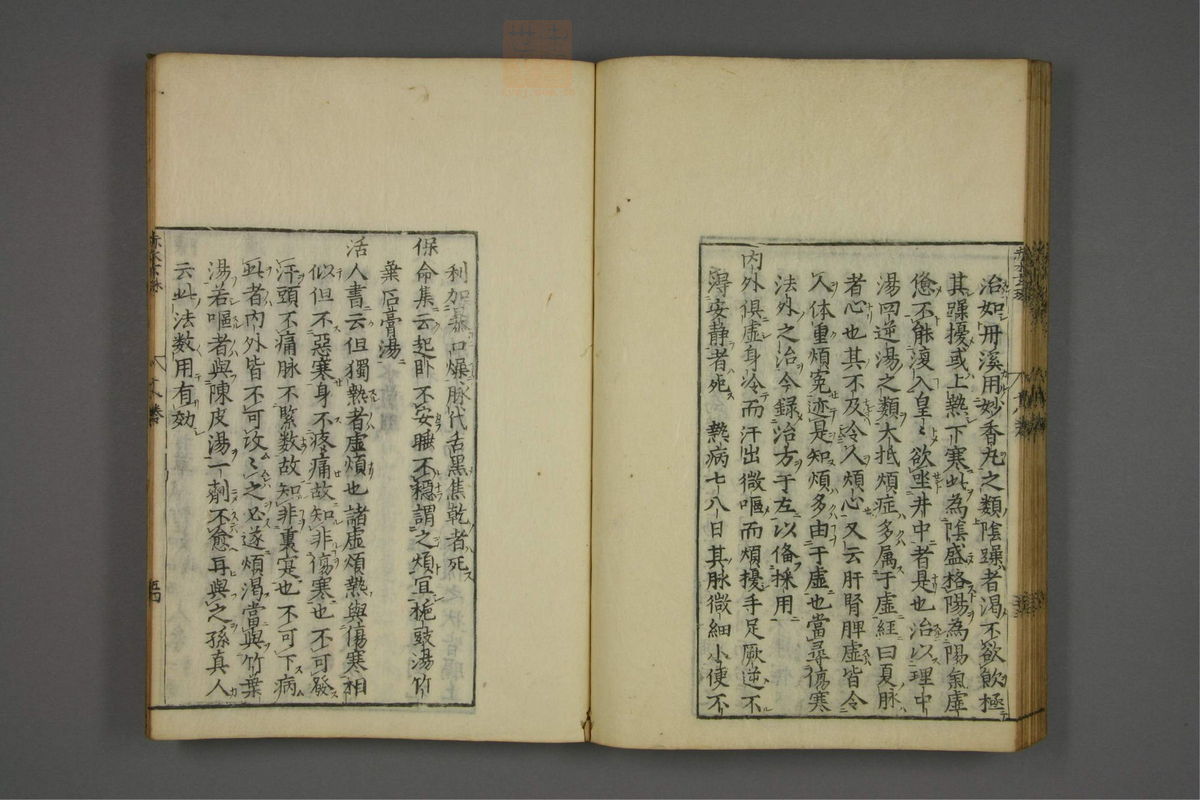 治如丹溪用妙香丸之類陰躁者渴不欲飲極
其躁擾或上熱下寒此為陰盛格陽為陽氣虛
憊不能滾入皇〻欲坐井中者是也治以理中
湯四逆湯之類大抵煩症多属于虛經曰夏脉
者心也其不及令人煩心又云肝腎脾虛皆令
人体重煩冤迹是知煩多由于虛也當尋傷寒
法外之治今録治方于左以俻採用
內外俱虛身冷而汗出微嘔而煩擾手足厥逆不
得安靜者死 熱病七八日其脉微細小便不
利加暴口燥脉代舌黑焦乾者死
保命集云起卧不安睡不穩謂之煩宜梔豉湯竹
葉石膏湯
活人書云但獨熱者虛煩也諸虛煩熱與傷寒相
似但不惡寒身不疼痛故知非傷寒也不可發
汗頭不痛脉不緊数故知非裏寔也不可下病
此者內外皆不可攻〻之必遂煩渴當與竹葉
湯若嘔者與陳皮湯一劑不愈再與之孫真人
云此法数用有効